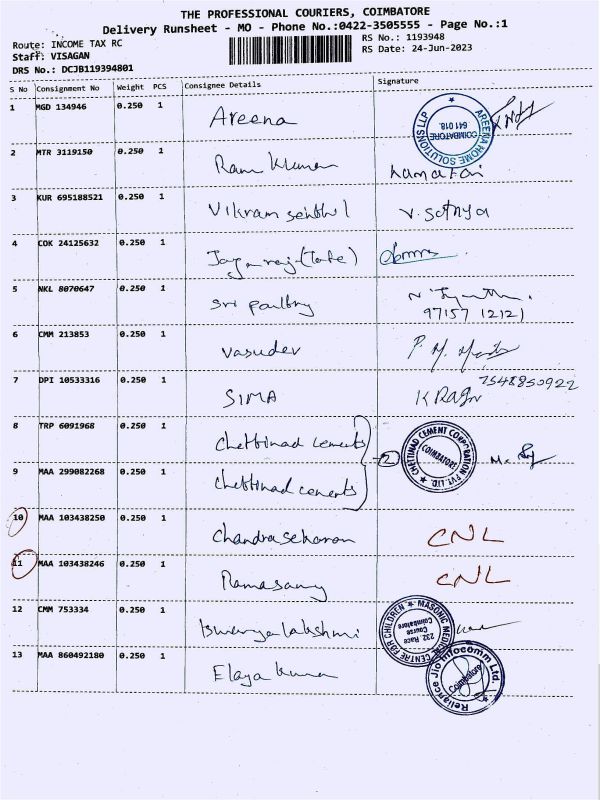 THE PROFESSIONAL COURIERS, COIMBATORE
Delivery Runsheet - MO - Phone No.:0422-3505555 - Page No.:1
Route: INCOME TAX RC
RS No.: 1193948
Staff: VISAGAN
RS Date: 24-Jun-2023
DRS No.: DCJB119394801
S No Consignment No Weight PCS Consignee Details Signature
1 MGD 134946 0.250 1 Areena
AREENA HOME SOLUTIONS LLP COIMBATORE 641 018
2 MTR 3119150 0.250 1 Ram Kumar
3 KUR 695188521 0.250 1 Vikram senthil V. Sathya
4 COK 24125632 0.250 1 (Tate)
5 NKL 8070647 0.250 1 Sri poultry
97157 12121
6 CMM 213853 0.250 1 Vasudev P. M.
7 DPI 10533316 0.250 1 SIMA K Ragu 7548850922
8 TRP 6091968 0.250 1 Chettinad cements
2 CHETTINAD CEMENT CORPORATION PVT. LTD. COIMBATORE M.
9 MAA 299082268 0.250 1 Chettinad cements
10 MAA 103438250 0.250 1 Chandrasekaran CNL
11 MAA 103438246 0.250 1 Ramasamy CNL
12 CMM 753334 0.250 1 Iswarya lakshmi
MASONIC MEDICAL CENTRE FOR CHILDREN 232, Race Course Coimbatore
13 MAA 860492180 0.250 1 Elaya Kumar
Reliance Jio Infocomm Ltd. Coimbatore